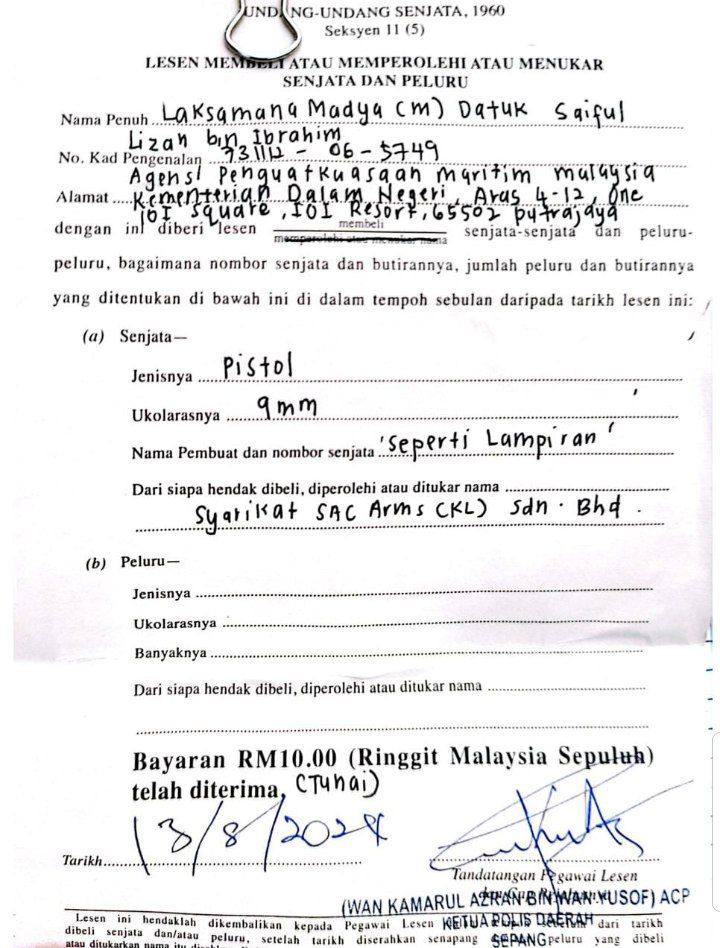 UNDANG-UNDANG SENJATA, 1960
Seksyen 11 (5)
LESEN MEMBELI ATAU MEMPEROLEHI ATAU MENUKAR
SENJATA DAN PELURU
Nama Penuh Laksamana Madya (M) Datuk Saiful
Lizan bin Ibrahim
No. Kad Pengenalan 731112 - 06 - 5749
Agensi Penguatkuasaan Maritim Malaysia
Alamat Kementerian Dalam Negeri, Aras 4-12, One
IOI Square, IOI Resort, 65502 Putrajaya
dengan ini diberi lesen membeli senjata-senjata dan peluru-
memperolehi atau menukar nama
peluru, bagaimana nombor senjata dan butirannya, jumlah peluru dan butirannya
yang ditentukan di bawah ini di dalam tempoh sebulan daripada tarikh lesen ini:
(a) Senjata—
Jenisnya Pistol
Ukolarasnya 9mm
Nama Pembuat dan nombor senjata 'Seperti Lampiran'
Dari siapa hendak dibeli, diperolehi atau ditukar nama
Syarikat SAC Arms (KL) Sdn. Bhd.
(b) Peluru—
Jenisnya
Ukolarasnya
Banyaknya
Dari siapa hendak dibeli, diperolehi atau ditukar nama
Bayaran RM10.00 (Ringgit Malaysia Sepuluh)
telah diterima, (Tunai)
Tarikh 13/8/2024
Tandatangan Pegawai Lesen
(WAN KAMARUL AZRAN BIN WAN YUSOF) ACP
Lesen ini hendaklah dikembalikan kepada Pegawai Lesen dari tarikh
KETUA POLIS DAERAH
dibeli senjata dan/atau peluru, setelah tarikh diserahkan senapang peluru yang dibeli
SEPANG
atau ditukarkan nama itu